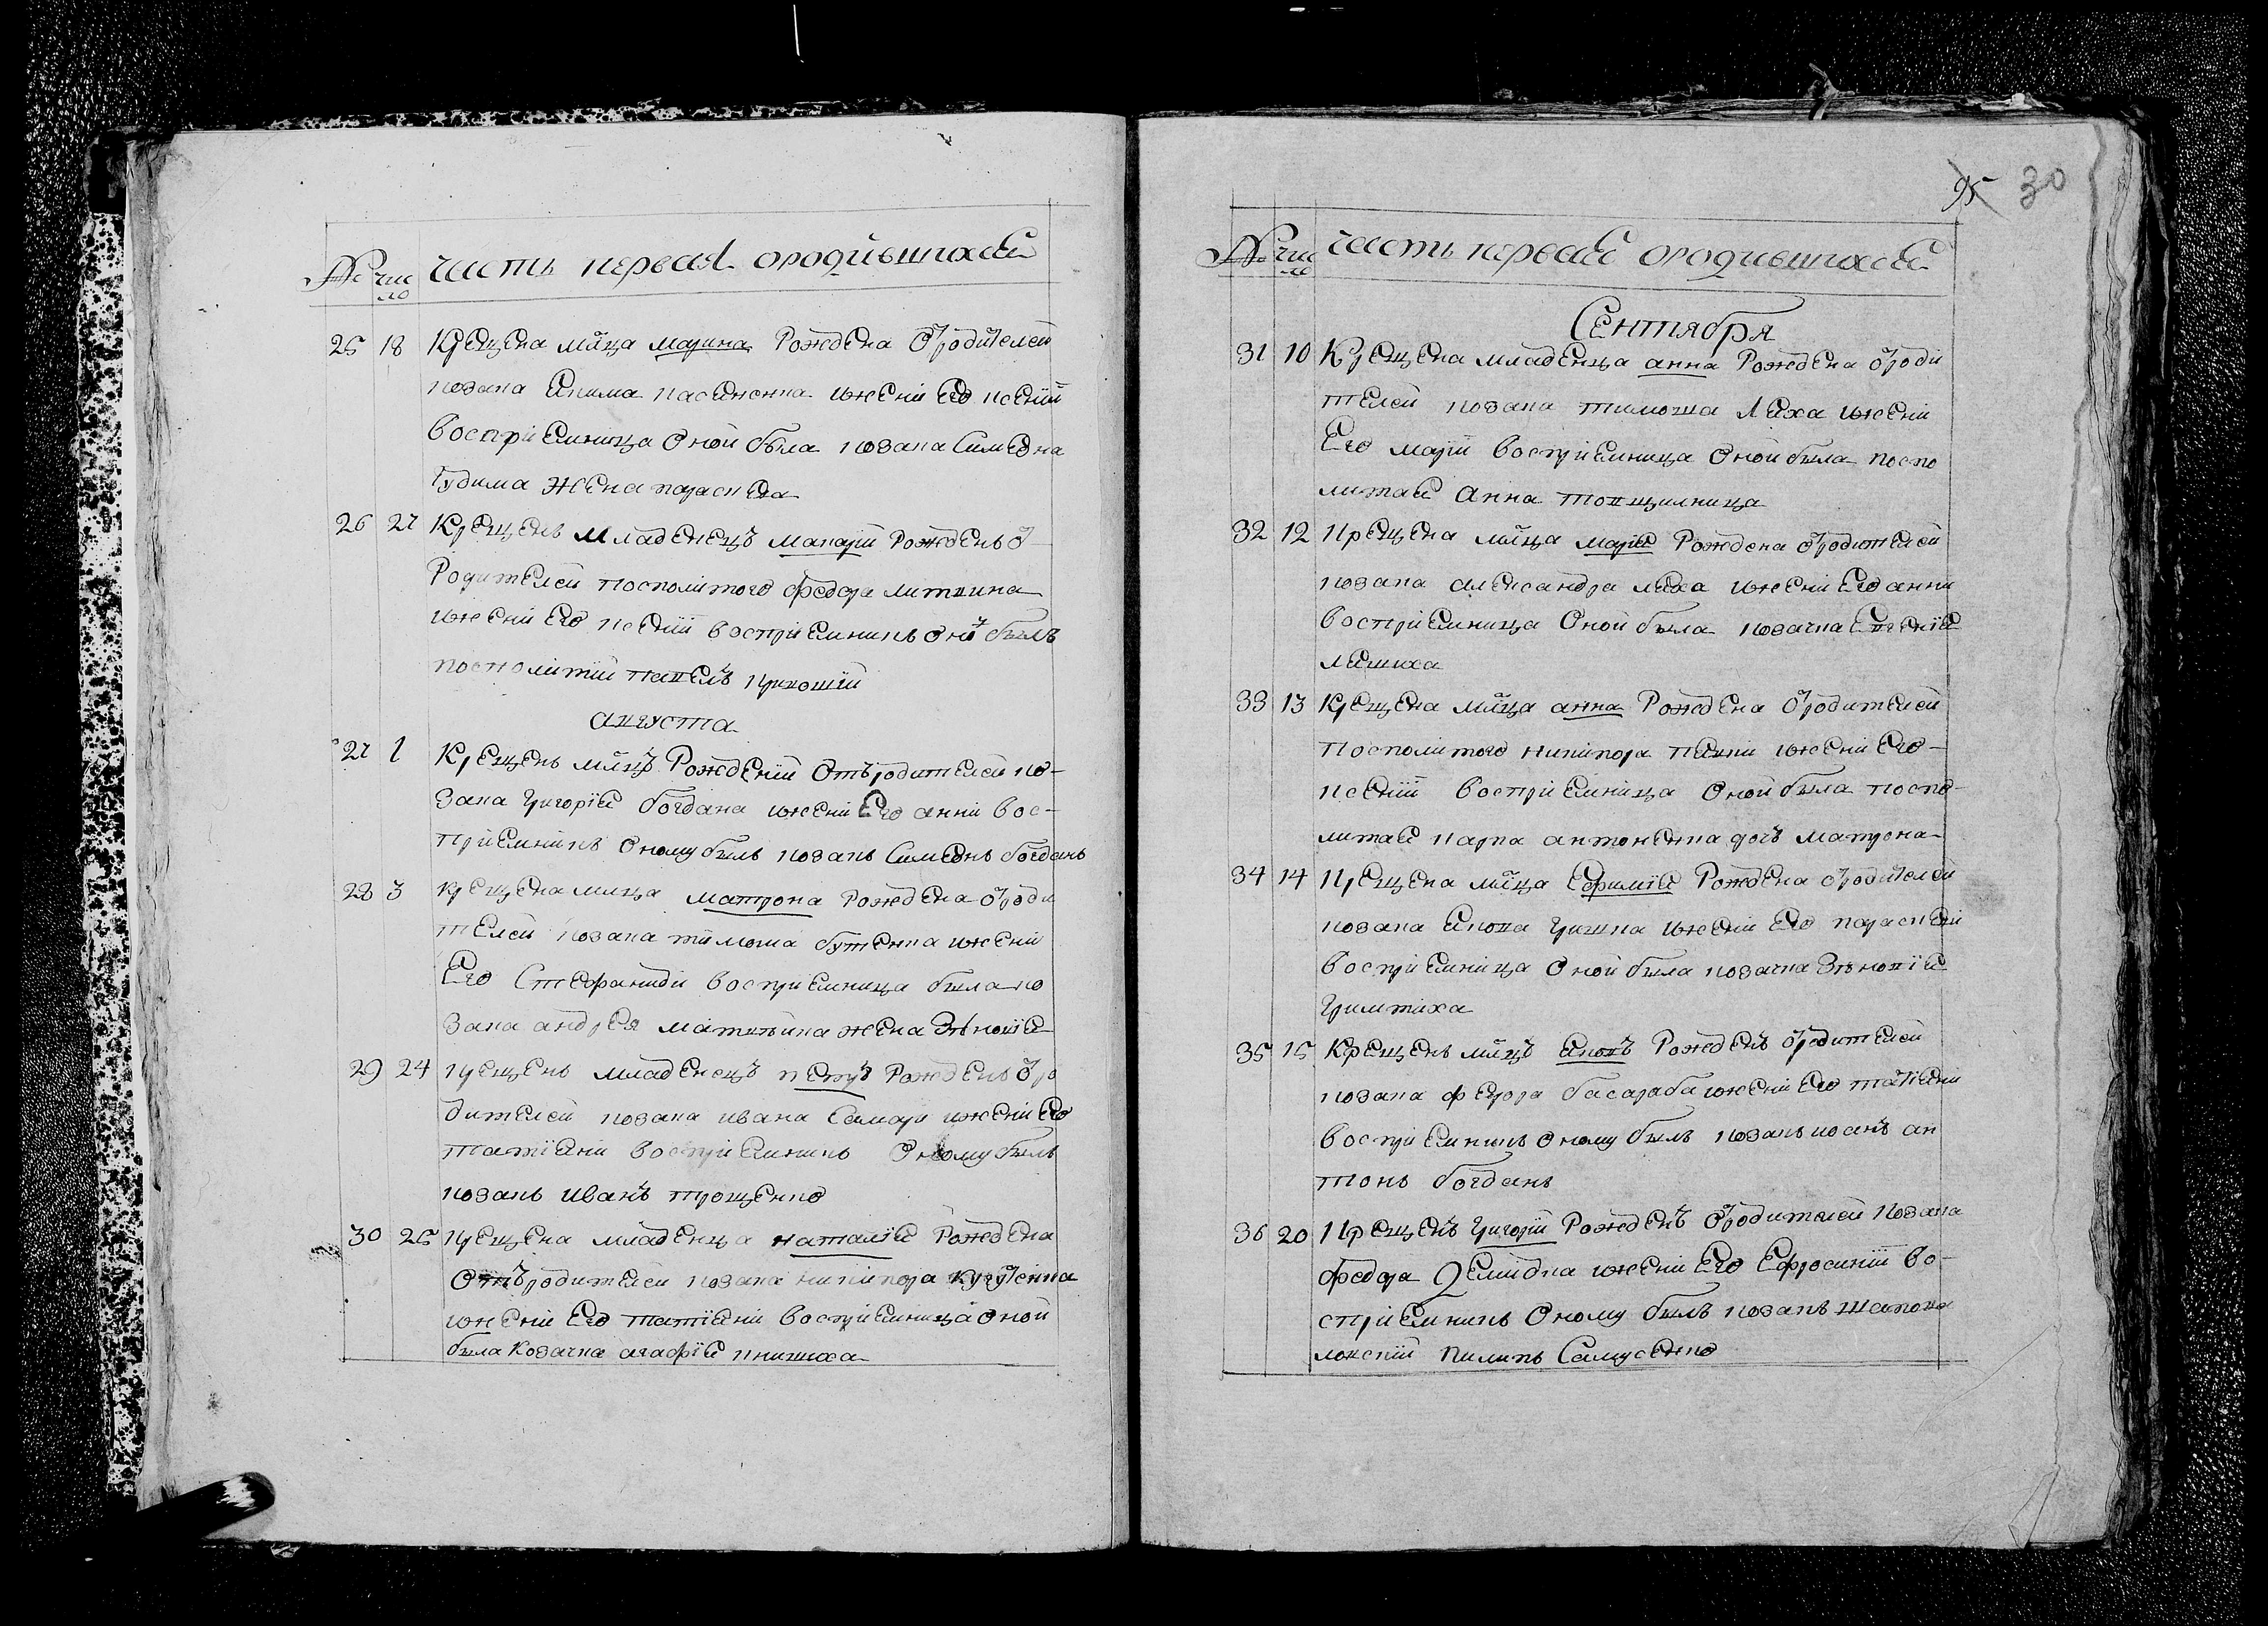 № чи
сло
часть первая ородившихся
25 18 Крещена мл҃ца марина Рождена ѿродителей
козака Якима пасененка ижени Его ксенїи
воспрїемница Оной была козака Симеона
Гудима жена параскева
26 27 Крещенъ младенецъ макарїй Рожденъ ѿ
Родителей посполитого федора литвина
ижени Его ксенїи воспрїемникъ Оно былъ
посполитїй павелъ
августа
27 1 Крещенъ мл҃цъ Рожденїй Отъродителей ко-
зака григорїя богдана ижени Его анни вос-
прїемникъ Оному былъ козакъ Симеонъ богданъ
28 3 крещена млца матрона Рождена ѿроди
телей козака тимоша бутенка ижени
Его Стефаниди воспрїемница была ко
зака андрея матвѣина жена Зѣновїя
29 24 крещенъ младенецъ петръ Рожденъ ѿро
дителей козака ивана Самари ижени Его
татїяни воспрїемникъ Оному былъ
козакъ иванъ трощенко
30 25 крещена младенца наталїя Рождена
Отъродителей козака никифора
ижени Его татїяни воспрїемница Оной
была козачка агафїя книшиха
95 30
№ чис
ло
часть первая ородившихся
Сентября
31 10 Крещена младенца анна Рождена ѿроди
телей козака тимоша Ляха ижени
Его марїи воспрїемница Оной была поспо
литая анна товщилница
32 12 крещена мл҃ца марїя Рождена ѿродителей
козака александра ляха ижени Его анни
воспрїемница Оной была козачка Евгенїя
ляшиха
33 13 Крещена мл҃ца анна Рождена ѿродителей
посполитого никифора певни ижени Его
ксенїи воспрїемница Оной была поспо-
литая карпа антоненка дочъ матрона
34 14 крещена мл҃ца Ефимїя Рождена ѿродителей
козака Якова гришка ижени Его параскеви
воспрїемница Оной была козачка Зѣновїя
35 15 Крещенъ мл҃цъ Яковъ Рожденъ ѿродителей
козака федора басараба ижени Его татїяни
воспрїемникъ Оному былъ козакъ ан
тонъ богданъ
36 20 Крещенъ григорїй Рожденъ ѿродителей козака
федора Демидка ижени Его Ефросинїи во-
спрїемникъ Оному былъ козакъ шапова
ловскїй Пилипъ Самусенко